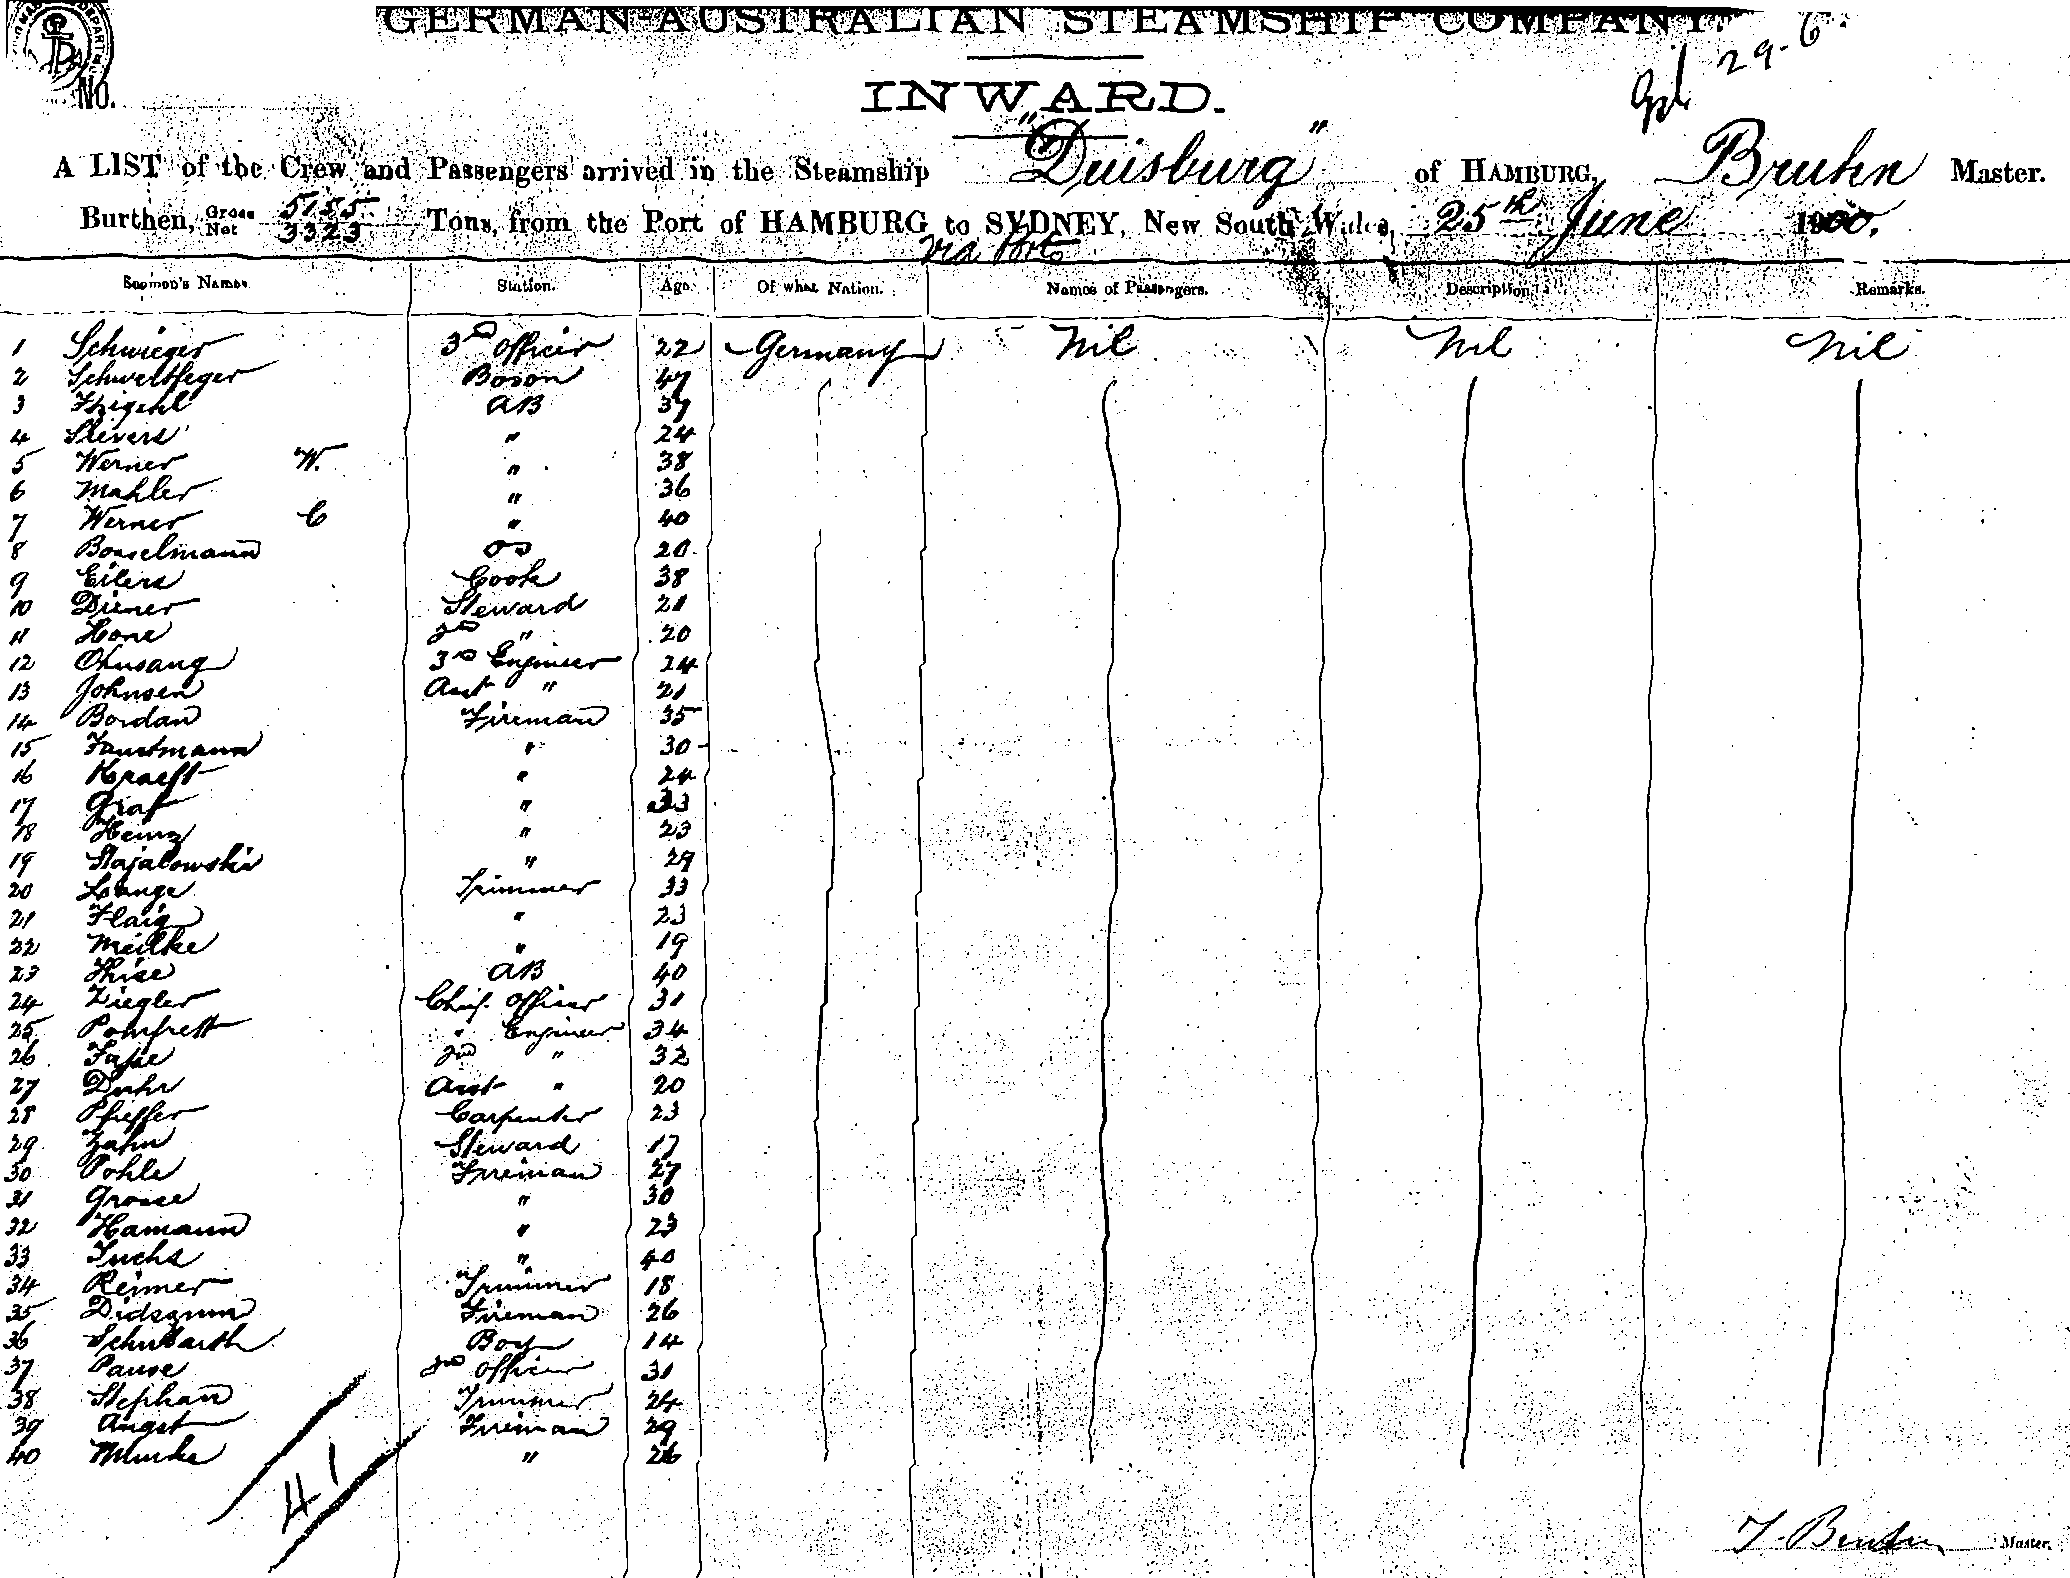 GERMAN-AUSTRALIAN STEAMSHIP COMPANY.
No.
INWARD.
29-6
A LIST of the Crew and Passengers arrived in the Steamship "Duisburg" of HAMBURG, Bruhn Master.
Burthen, Gross 5155 Net 3323 Tons, from the Port of HAMBURG to SYDNEY, New South Wales, 25th June 1900.
via Ports
Seamen's Names. Station. Age. Of what Nation. Names of Passengers. Description. Remarks.
1 Schwieger 3rd Officer 22 Germany Nil Nil Nil
2 Schwertfeger Boson 47
3 AB 37
4 Sievers " 24
5 Werner W. " 38
6 Mahler " 36
7 Werner C " 40
8 Bosselmann OS 20
9 Eilers Cook 38
10 Diener Steward 21
11 Hone 2nd " 20
12 Ohnsang 3rd Engineer 24
13 Johnsen Asst " 21
14 Bordan Fireman 35
15 Faustmann " 30
16 Kraeft " 24
17 Graf " 33
18 Heinz " 23
19 Stajalowski " 29
20 Lange Trimmer 33
21 Flaig " 23
22 Meilke " 19
23 Thise AB 40
24 Ziegler Chief Officer 31
25 Pomfrett " Engineer 34
26 2nd " 32
27 Duhr Asst " 20
28 Pfeffer Carpenter 23
29 Zahn Steward 17
30 Pohle Fireman 27
31 Grosse " 30
32 Hamann " 23
33 Fuchs " 40
34 Reimer Trimmer 18
35 Didszum Fireman 26
36 Schubarth Boy 14
37 Pause 2nd Officer 31
38 Stephan Trimmer 24
39 Angst Fireman 29
40 Muncke " 26
41
Bruhn Master.